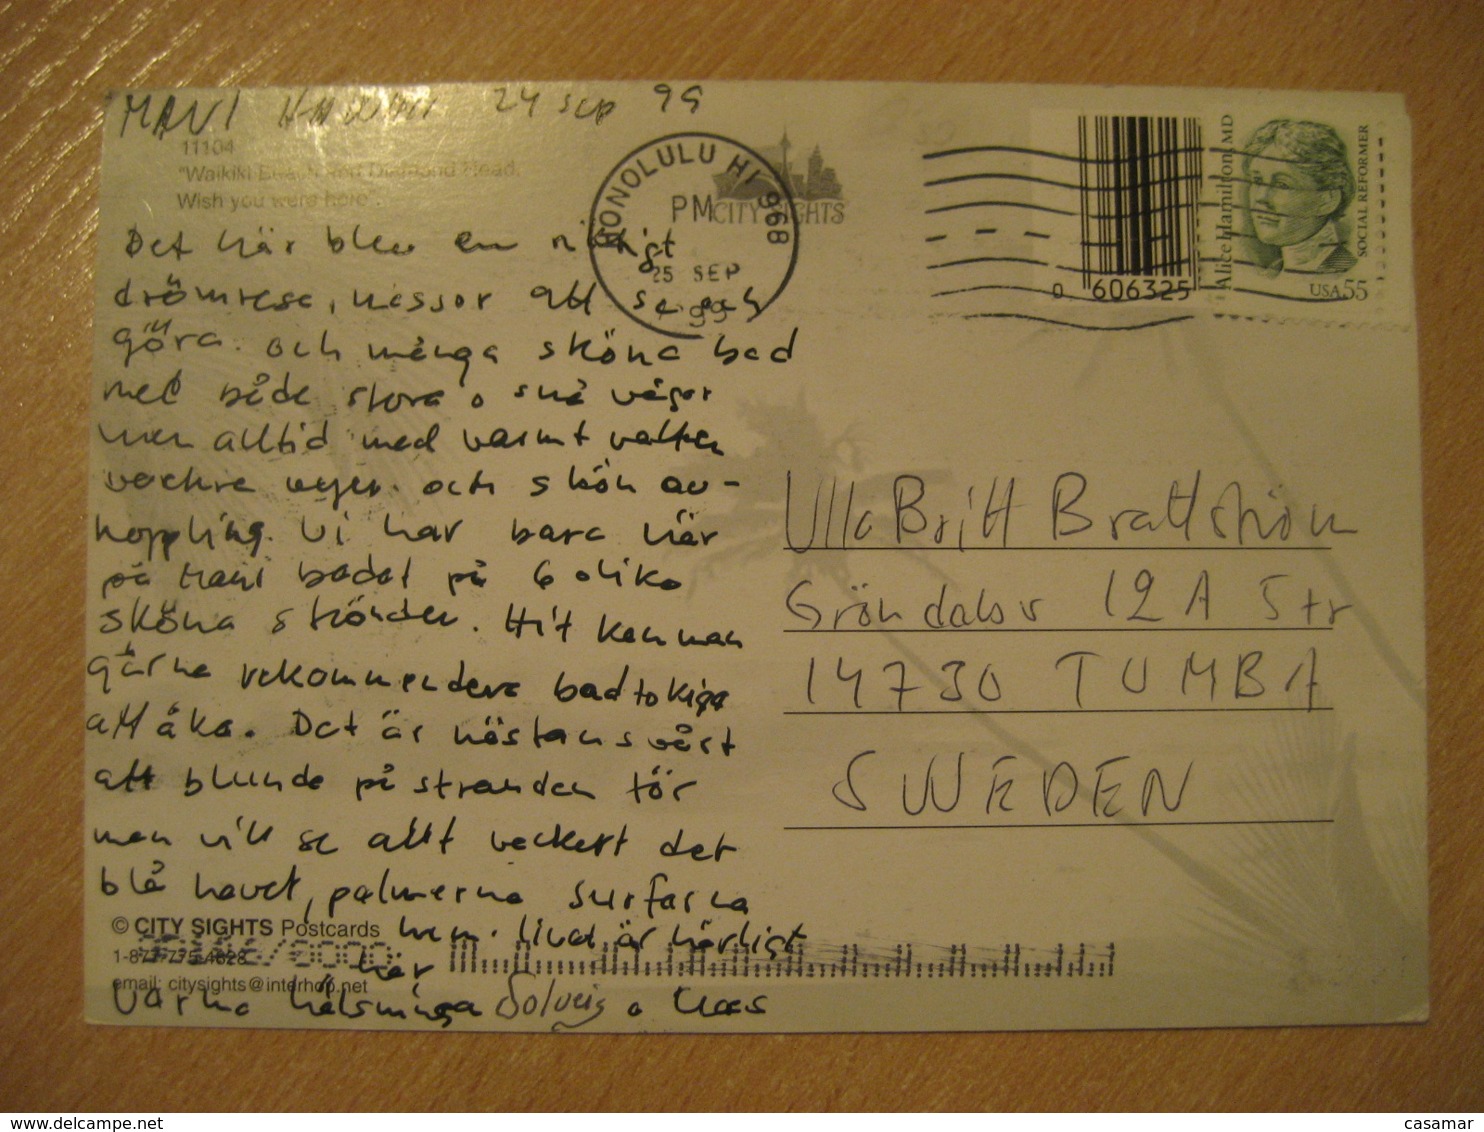 MAUI HAWAII 24 sep 99
11104
"Waikiki Beach and Diamond Head,
Wish you were here".
HONOLULU HI 968
PM
25 SEP
1999
CITY SIGHTS
0 606325
Alice Hamilton, MD
SOCIAL REFORMER
USA 55
Det här blev en riktigt
drömresa, massor att se och
göra. och många sköna bad
med både stora o små vågor
men alltid med varmt vatten
vackra vyer. och skön av-
koppling. Vi har bara här
på Maui badat på 6 olika
sköna stränder. Hit kan man
gärna rekommendera badtokiga
att åka. Det är nästan svårt
att blunda på stranden för
man vill se allt vackert det
blå havet, palmerna surfarna
mm. livet är härligt
här
Varma hälsningar Solveig o Claes
Ulla Britt Brattström
Gröndalsv 12A 5tr
14730 TUMBA
SWEDEN
© CITY SIGHTS Postcards
1-877-775-4828
email: citysights@interhop.net
www.delcampe.net
casamar